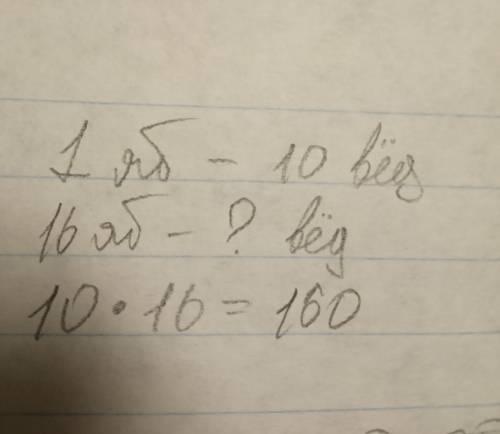 1 яб - 10 вёд
16 яб - ? вёд
10 • 16 = 160